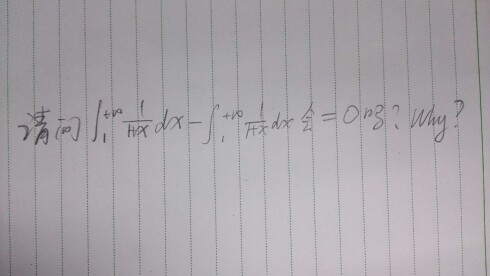 请问 ∫₁^{+∞} 1/(1+x) dx - ∫₁^{+∞} 1/(1+x) dx 会 = 0 吗? Why?